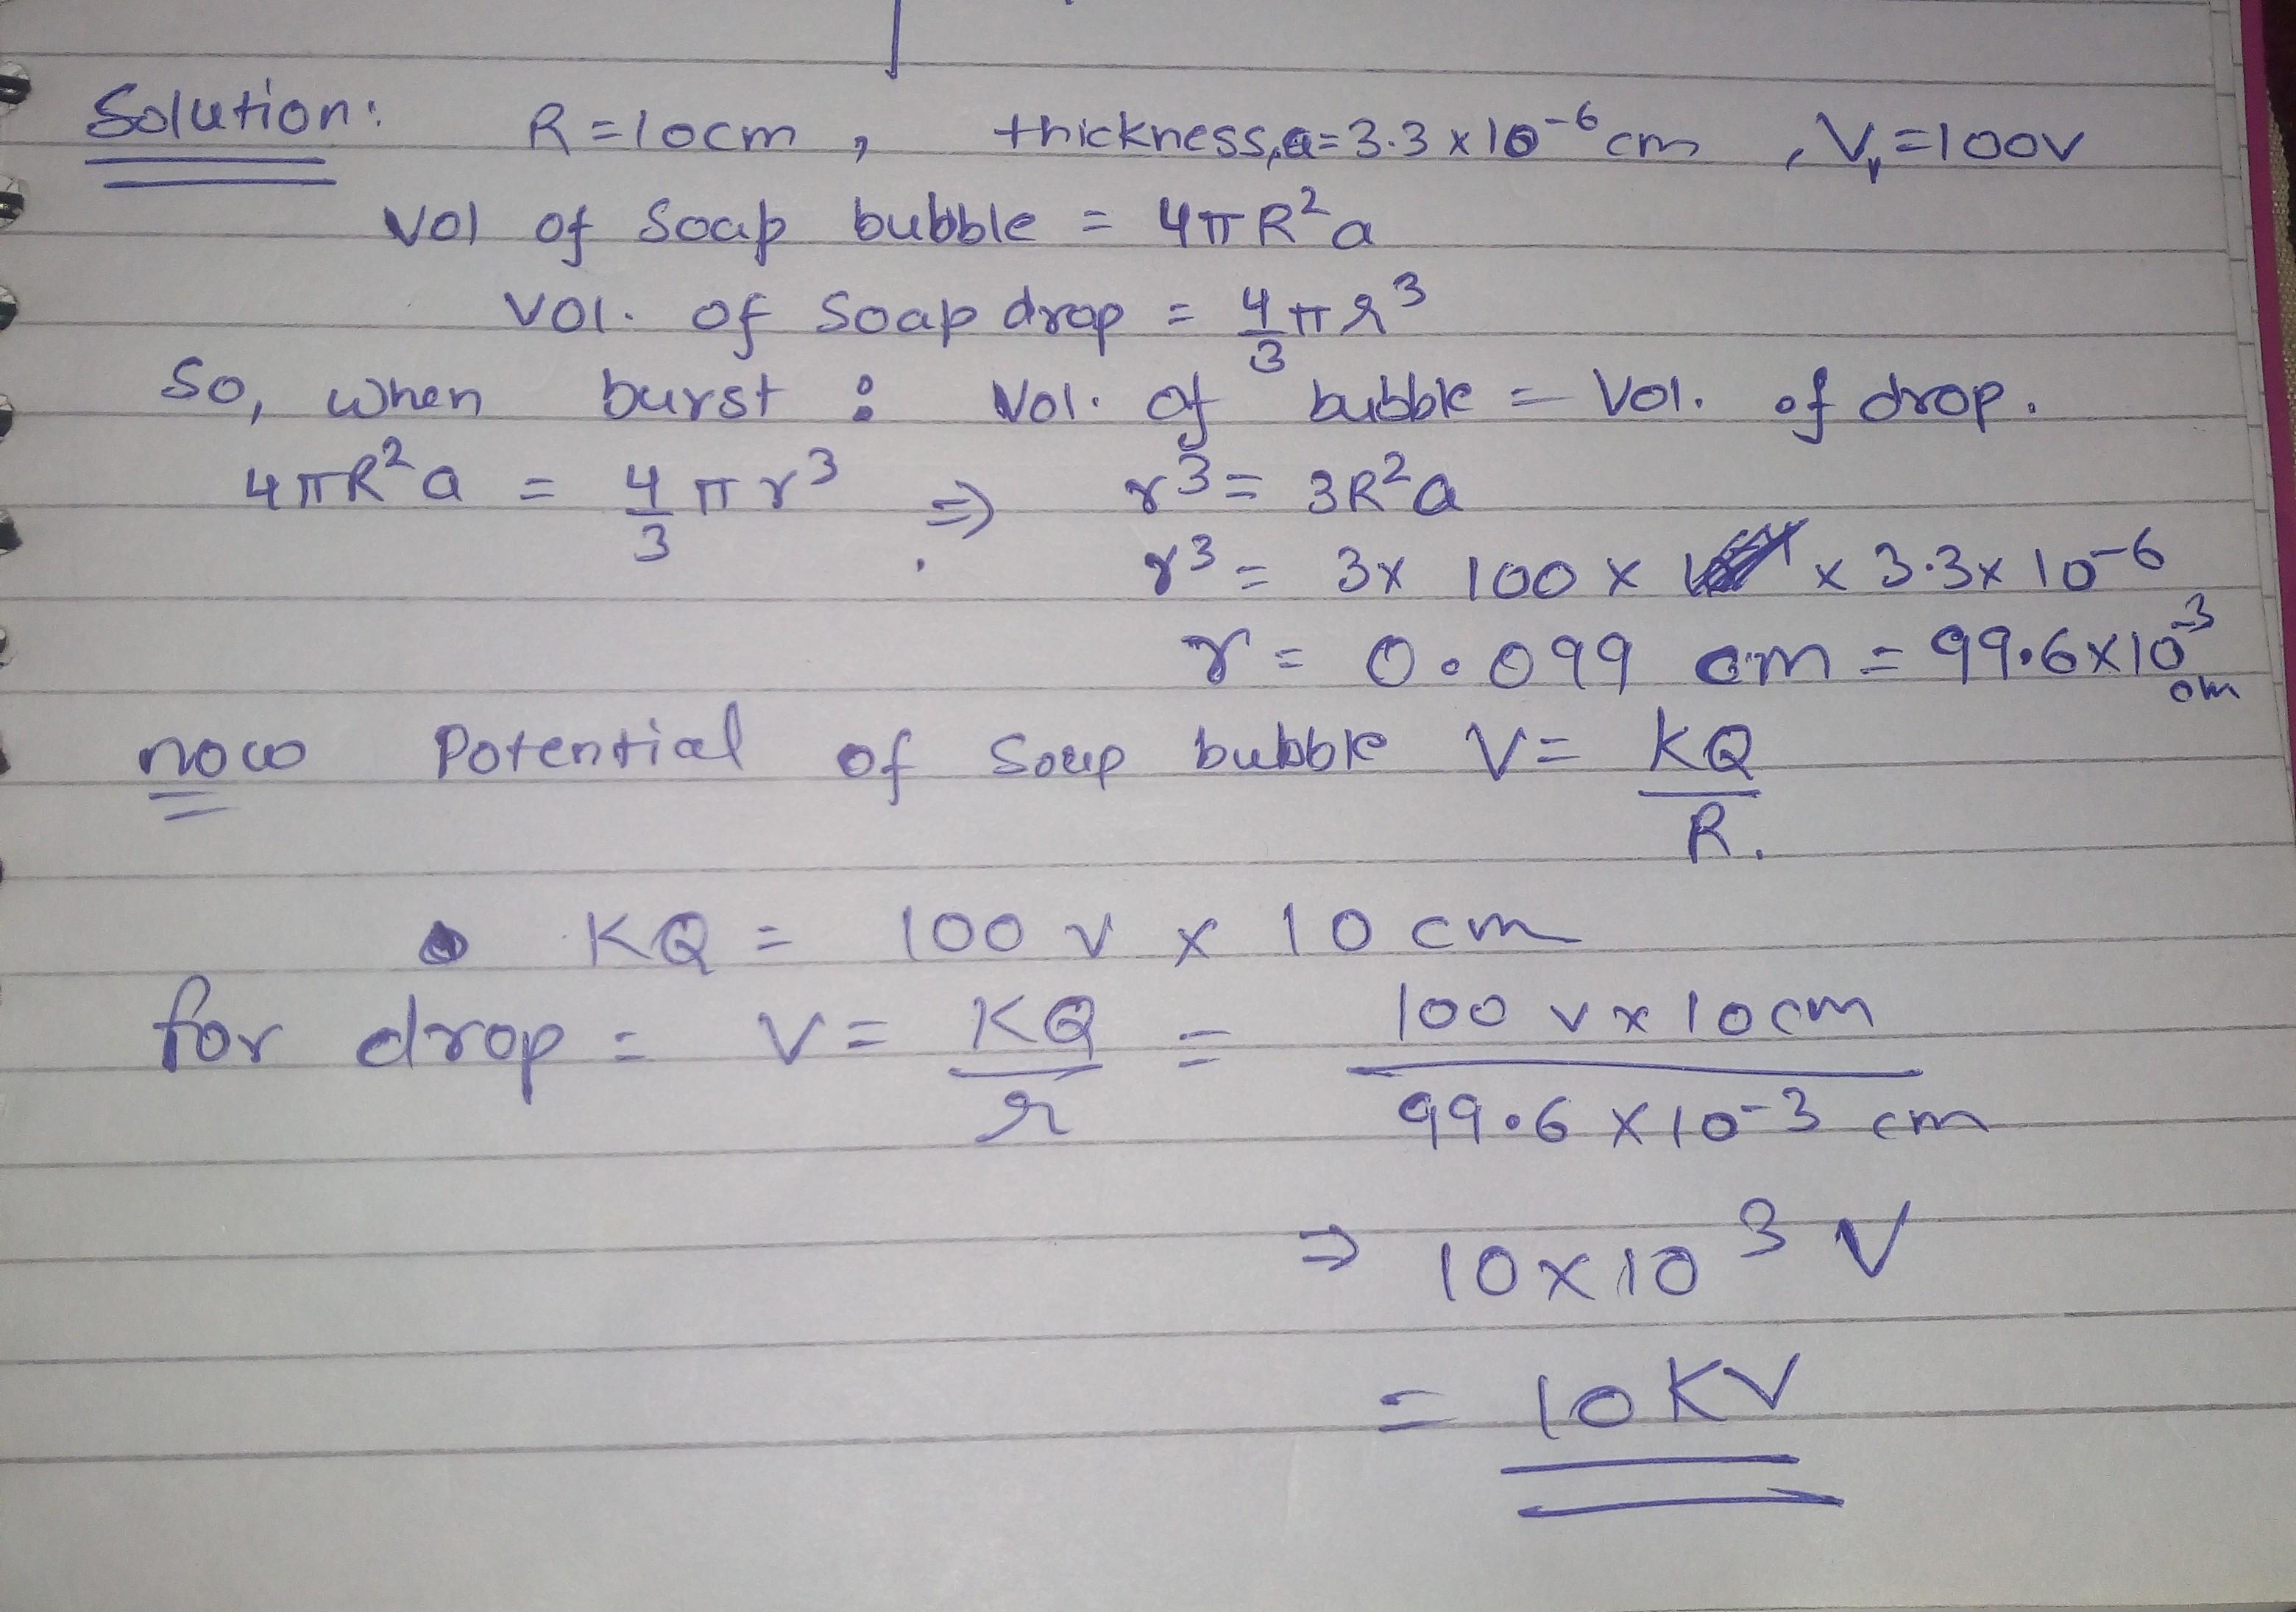 Solution: R = 10cm , thickness, a = 3.3 x 10^-6 cm , V, = 100V
Vol of Soap bubble = 4πR²a
Vol. of Soap drop = 4/3 πr³
So, when burst : Vol. of bubble = Vol. of drop.
4πR²a = 4/3 πr³ ⇒ r³ = 3R²a
r³ = 3x 100 x x 3.3x 10^-6
r = 0.099 cm = 99.6x10^-3 cm
now Potential of Soap bubble V = KQ/R.
KQ = 100 v x 10 cm
for drop = V = KQ/r = 100 v x 10cm / 99.6 x 10^-3 cm
⇒ 10x10³ V
= 10KV